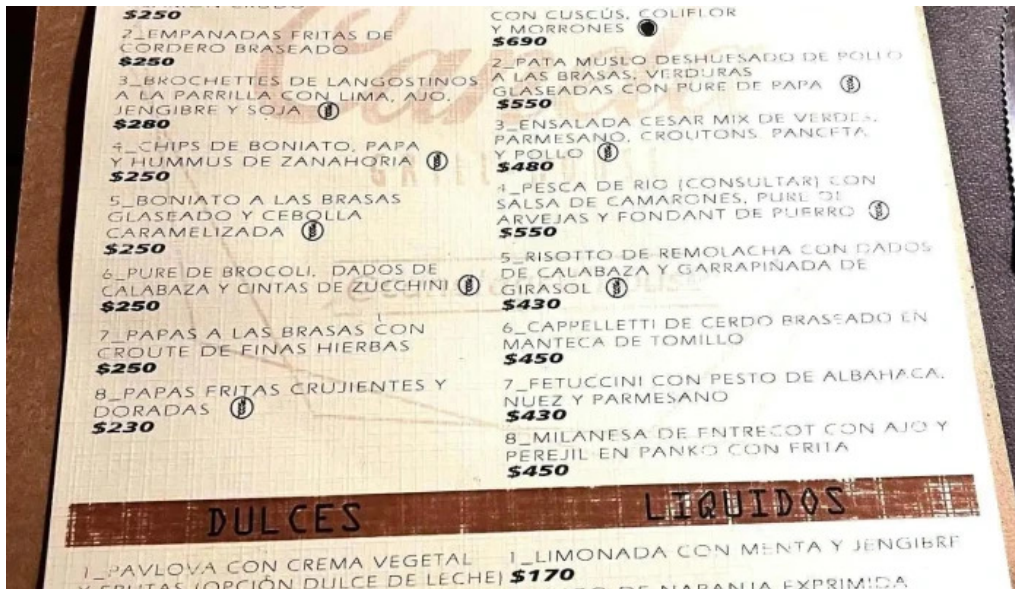 $250
2_EMPANADAS FRITAS DE
CORDERO BRASEADO
$250
3_BROCHETTES DE LANGOSTINOS
A LA PARRILLA CON LIMA, AJO,
JENGIBRE Y SOJA
$280
4_CHIPS DE BONIATO, PAPA
Y HUMMUS DE ZANAHORIA
$250
5_BONIATO A LAS BRASAS
GLASEADO Y CEBOLLA
CARAMELIZADA
$250
6_PURE DE BROCOLI, DADOS DE
CALABAZA Y CINTAS DE ZUCCHINI
$250
7_PAPAS A LAS BRASAS CON
CROUTE DE FINAS HIERBAS
$250
8_PAPAS FRITAS CRUJIENTES Y
DORADAS
$230
CON CUSCÚS, COLIFLOR
Y MORRONES
$690
2_PATA MUSLO DESHUESADO DE POLLO
A LAS BRASAS, VERDURAS
GLASEADAS CON PURE DE PAPA
$550
3_ENSALADA CESAR MIX DE VERDES,
PARMESANO, CROUTONS, PANCETA
Y POLLO
$480
4_PESCA DE RIO (CONSULTAR) CON
SALSA DE CAMARONES, PURE DE
ARVEJAS Y FONDANT DE PUERRO
$550
5_RISOTTO DE REMOLACHA CON DADOS
DE CALABAZA Y GARRAPIÑADA DE
GIRASOL
$430
6_CAPPELLETTI DE CERDO BRASEADO EN
MANTECA DE TOMILLO
$450
7_FETUCCINI CON PESTO DE ALBAHACA,
NUEZ Y PARMESANO
$430
8_MILANESA DE ENTRECOT CON AJO Y
PEREJIL EN PANKO CON FRITA
$450
DULCES
1_PAVLOVA CON CREMA VEGETAL
Y FRUTAS (OPCIÓN DULCE DE LECHE)
LIQUIDOS
1_LIMONADA CON MENTA Y JENGIBRE
$170
DE NARANJA EXPRIMIDA